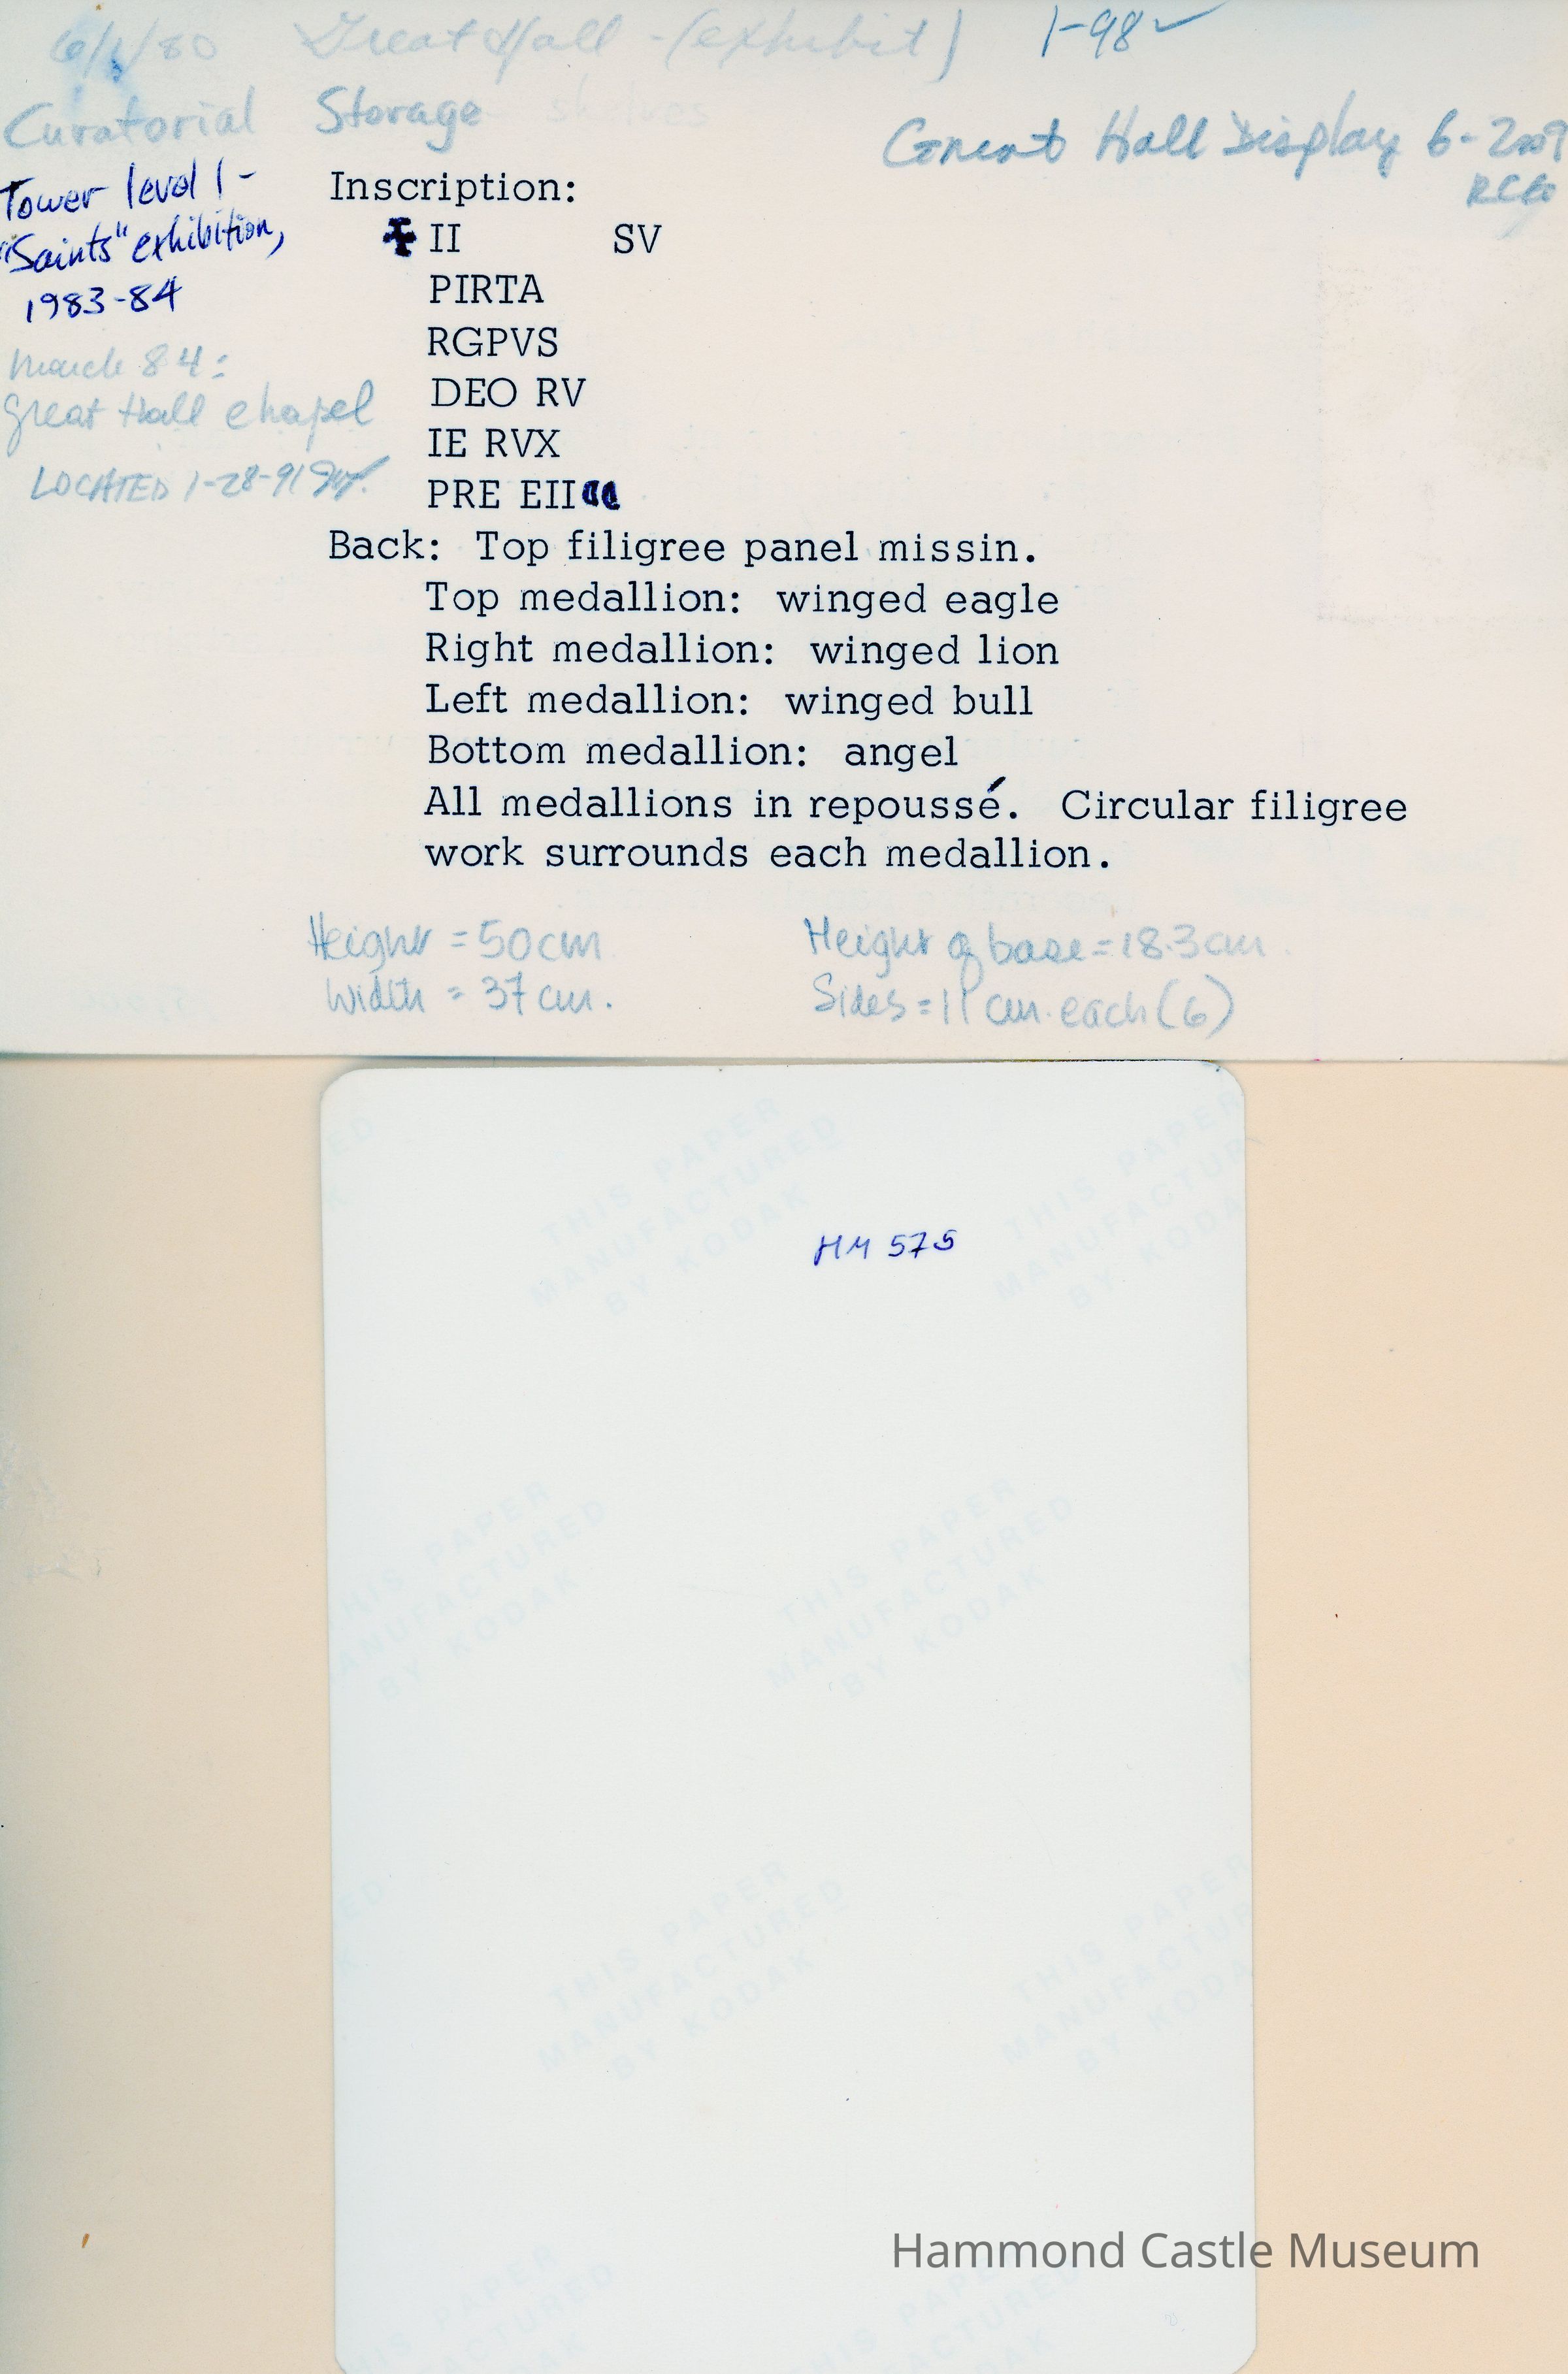 6/1/80 Great Hall - (exhibit) 1-98 ✓
Curatorial Storage shelves
Great Hall Display 6-2009
Tower level 1 -
"Saints" exhibition,
1983-84
March 84:
Great Hall chapel
LOCATED 1-28-91
Inscription:
✠ II SV
PIRTA
RGPVS
DEO RV
IE RVX
PRE EII
Back: Top filigree panel missin.
Top medallion: winged eagle
Right medallion: winged lion
Left medallion: winged bull
Bottom medallion: angel
All medallions in repoussé. Circular filigree
work surrounds each medallion.
Height = 50 cm
Width = 37 cm.
Height of base = 18.3 cm.
Sides = 11 cm. each (6)
THIS PAPER
MANUFACTURED
BY KODAK
HM 575
Hammond Castle Museum